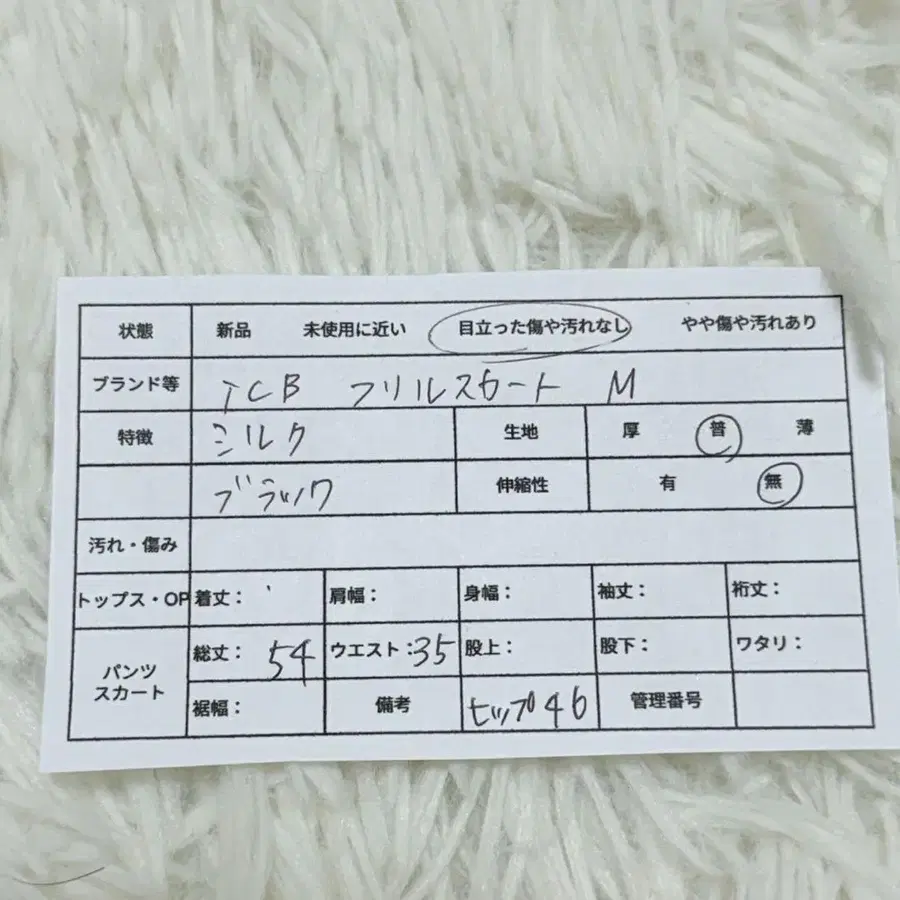 状態 新品 未使用に近い 目立った傷や汚れなし やや傷や汚れあり
ブランド等 TCB フリルスカート M
特徴 シルク 生地 厚 普 薄
ブラック 伸縮性 有 無
汚れ・傷み
トップス・OP 着丈: 肩幅: 身幅: 袖丈: 裄丈:
パンツ スカート 総丈: 54 ウエスト:35 股上: 股下: ワタリ:
裾幅: 備考 ヒップ46 管理番号